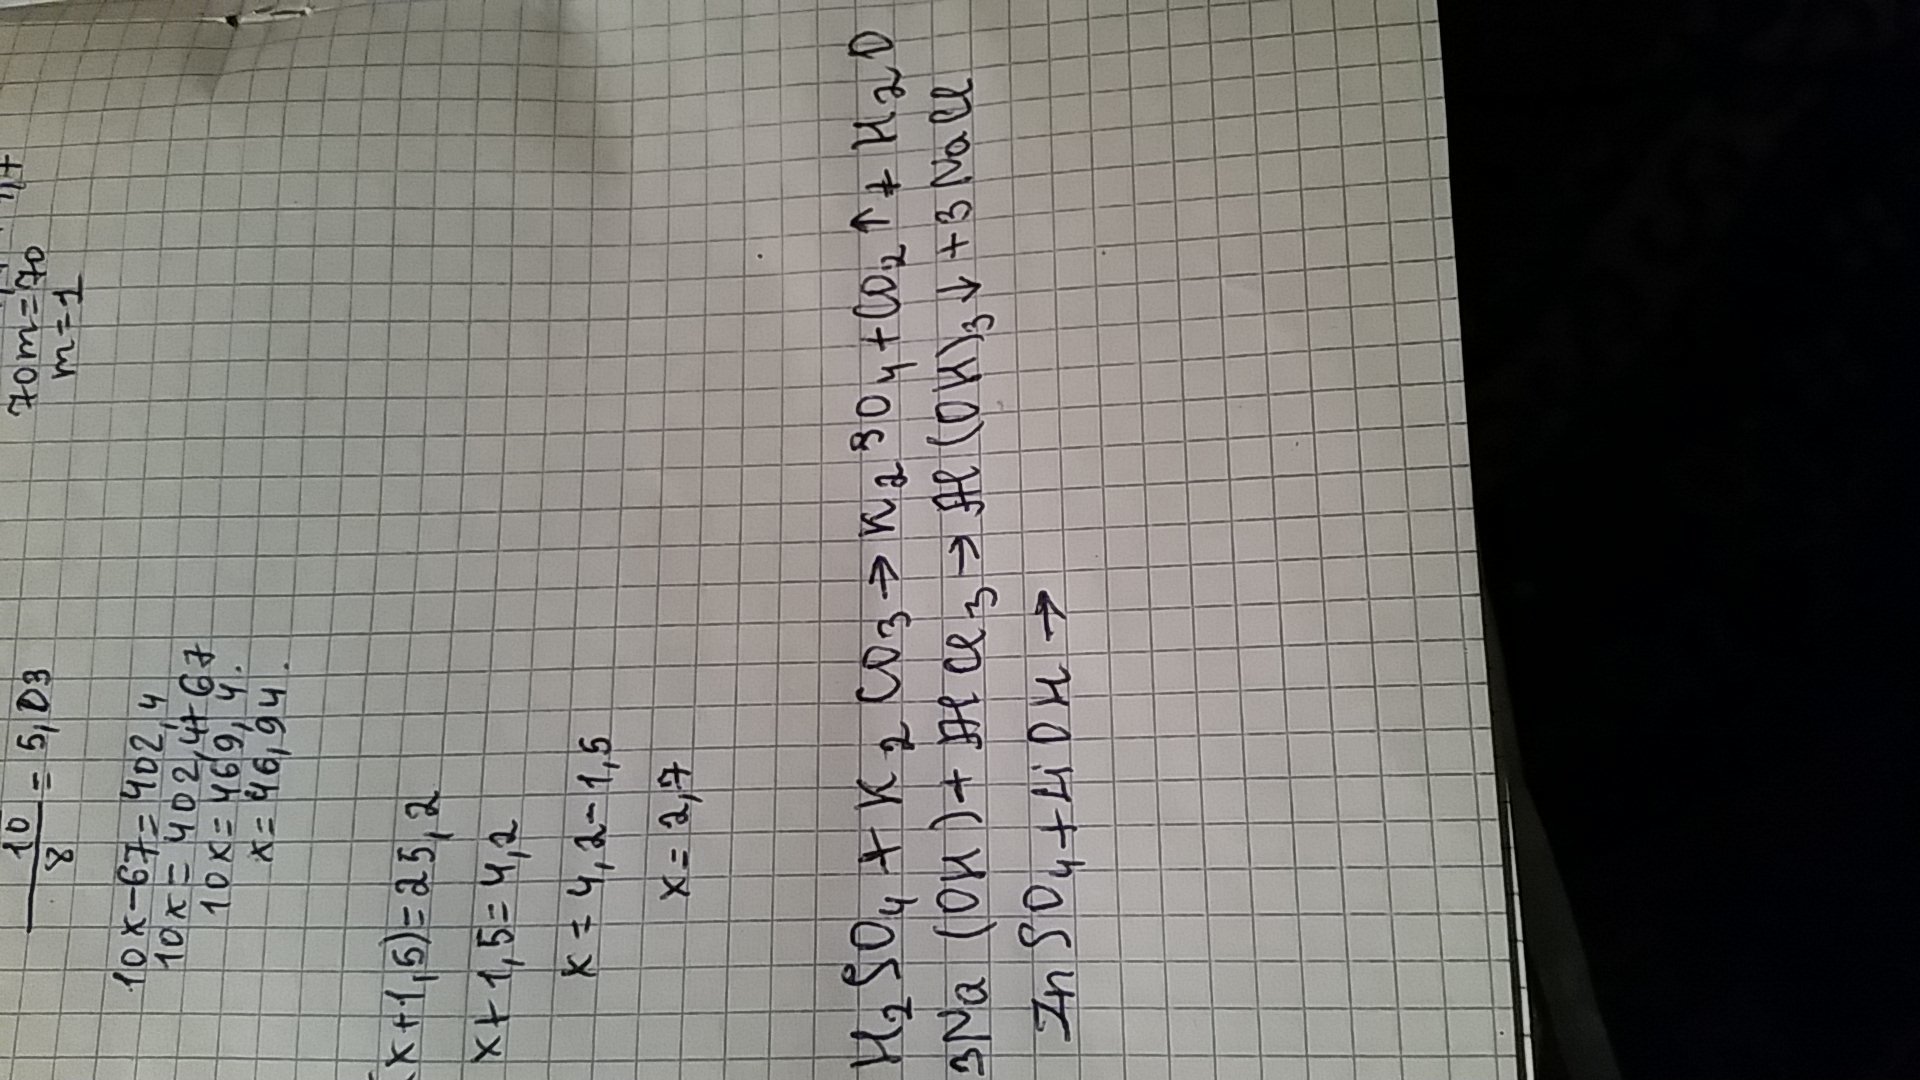 70m=70
m=1
10
8
= 5,03
10x-67=402,4
10x=402,4+67
10x=469,4.
x=46,94.
(x+1,5)=25,2
x+1,5=4,2
x=4,2-1,5
x=2,7
H₂SO₄+K₂CO₃→K₂SO₄+CO₂↑+H₂O
3Na(OH)+AlCl₃→Al(OH)₃↓+3NaCl
ZnSO₄+LiOH→